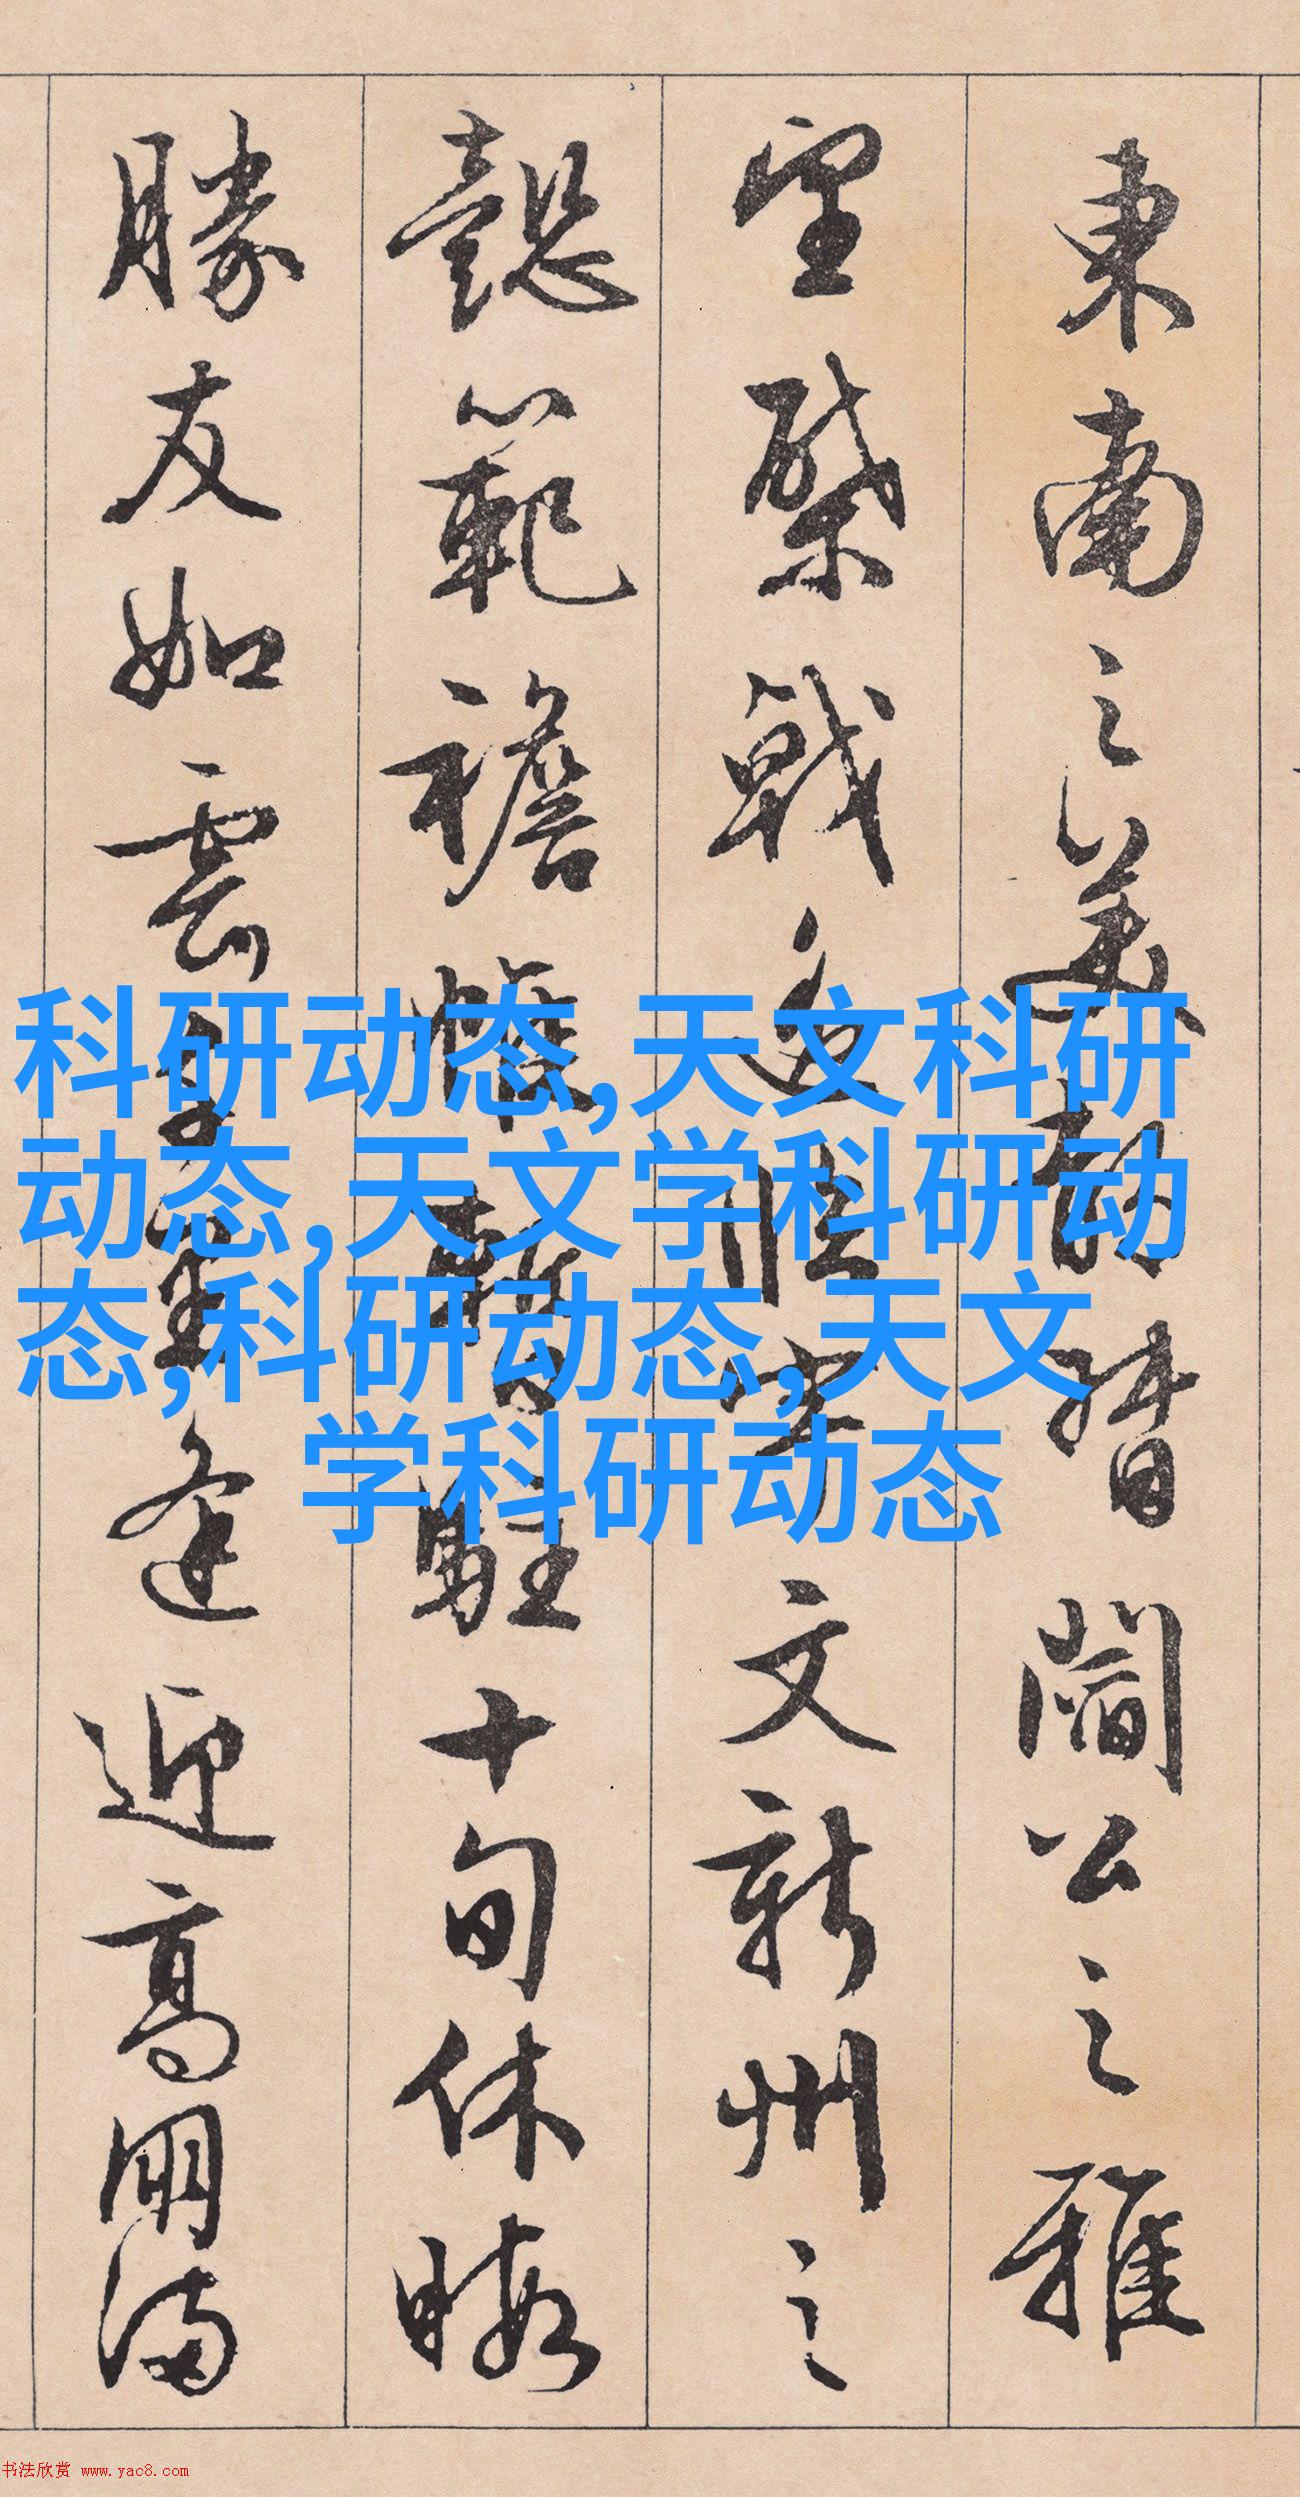 東南之美都督閻公之雅
望棨戟遥臨宇文新州之
懿範襜帷暫駐十旬休暇
勝友如雲千里逢迎高朋滿
科研动态,天文科研
动态,天文学科研动
态,科研动态,天文
学科研动态
书法欣赏 www.yac8.com